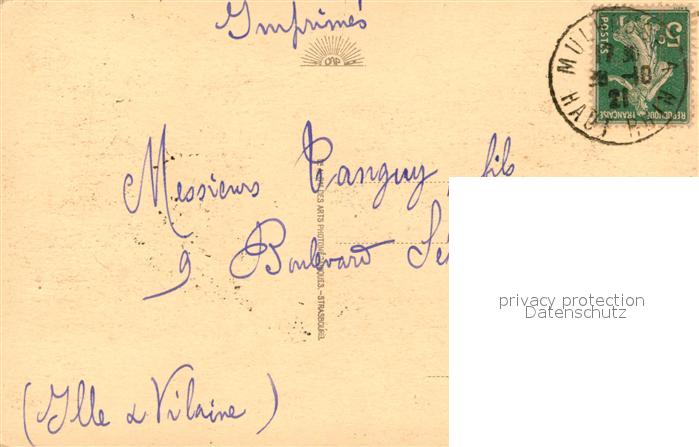 Imprimés
5c
POSTES
REPUBLIQUE FRANÇAISE
MUL
30 -10
21
HAUT RHIN
Messieurs Tanguy, fils
9 Boulevard Sé
DES ARTS PHOTOMÉCANIQUES. - STRASBOURG
privacy protection
Datenschutz
(Ille & Vilaine)